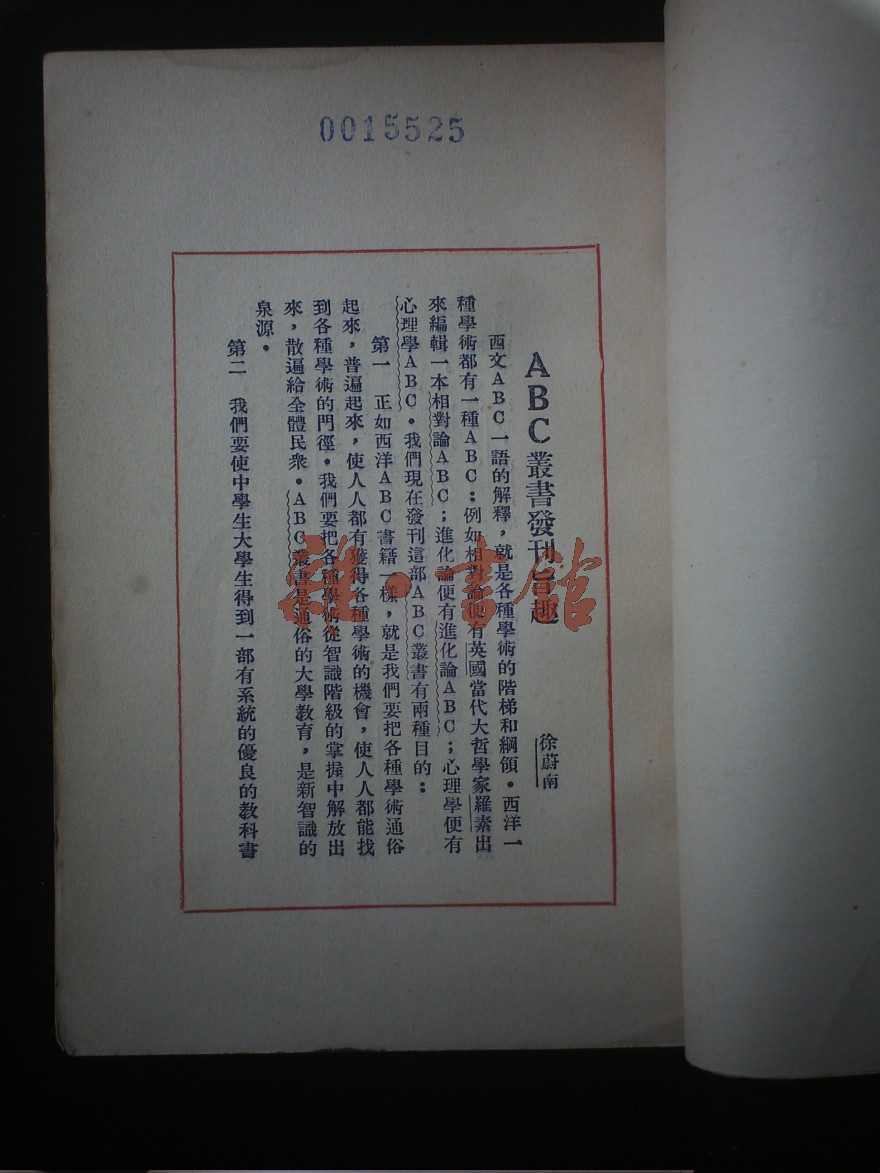 0015525
ABC叢書發刊旨趣
徐蔚南
西文ABC一語的解釋，就是各種學術的階梯和綱領。西洋一
種學術都有一種ABC：例如相對論便有英國當代大哲學家羅素出
來編輯一本相對論ABC；進化論便有進化論ABC；心理學便有
心理學ABC。我們現在發刊這部ABC叢書有兩種目的：
第一　正如西洋ABC書籍一樣，就是我們要把各種學術通俗
起來，普遍起來，使人人都有獲得各種學術的機會，使人人都能找
到各種學術的門徑。我們要把各種學術從智識階級的掌握中解放出
來，散遍給全體民衆。ABC叢書是通俗的大學教育，是新智識的
泉源。
第二　我們要使中學生大學生得到一部有系統的優良的教科書
雜·書館